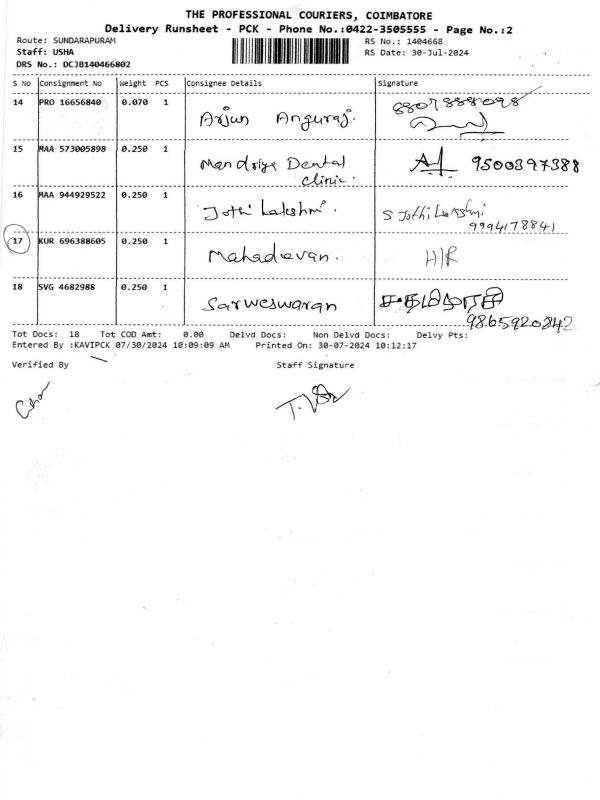 THE PROFESSIONAL COURIERS, COIMBATORE
Delivery Runsheet - PCK - Phone No.:0422-3505555 - Page No.:2
Route: SUNDARAPURAM
RS No.: 1404668
Staff: USHA
RS Date: 30-Jul-2024
DRS No.: DCJB140466802
S No Consignment No Weight PCS Consignee Details Signature
14 PRO 16656840 0.070 1 Arjun Anguraj. 8807888098
15 MAA 573005898 0.250 1 Mandriya Dental Clinic. 9500397388
16 MAA 944929522 0.250 1 Jothi Lakshmi. S Jothi Lakshmi
9994178841
17 KUR 696388605 0.250 1 Mahadevan. H/R
18 SVG 4682988 0.250 1 Sarweswaran
9865920842
Tot Docs: 18 Tot COD Amt: 0.00 Delvd Docs: Non Delvd Docs: Delvy Pts:
Entered By :KAVIPCK 07/30/2024 10:09:09 AM Printed On: 30-07-2024 10:12:17
Verified By Staff Signature